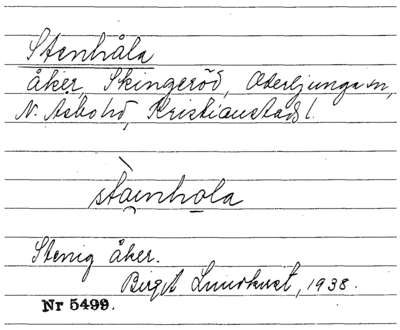 Stenhåla
åker, Skingeröd, Oderljunga sn,
N. Åsbo hd, Kristianstads l.
stainhola
Stenig åker.
Birgit Lundkvist, 1938.
Nr 5499.